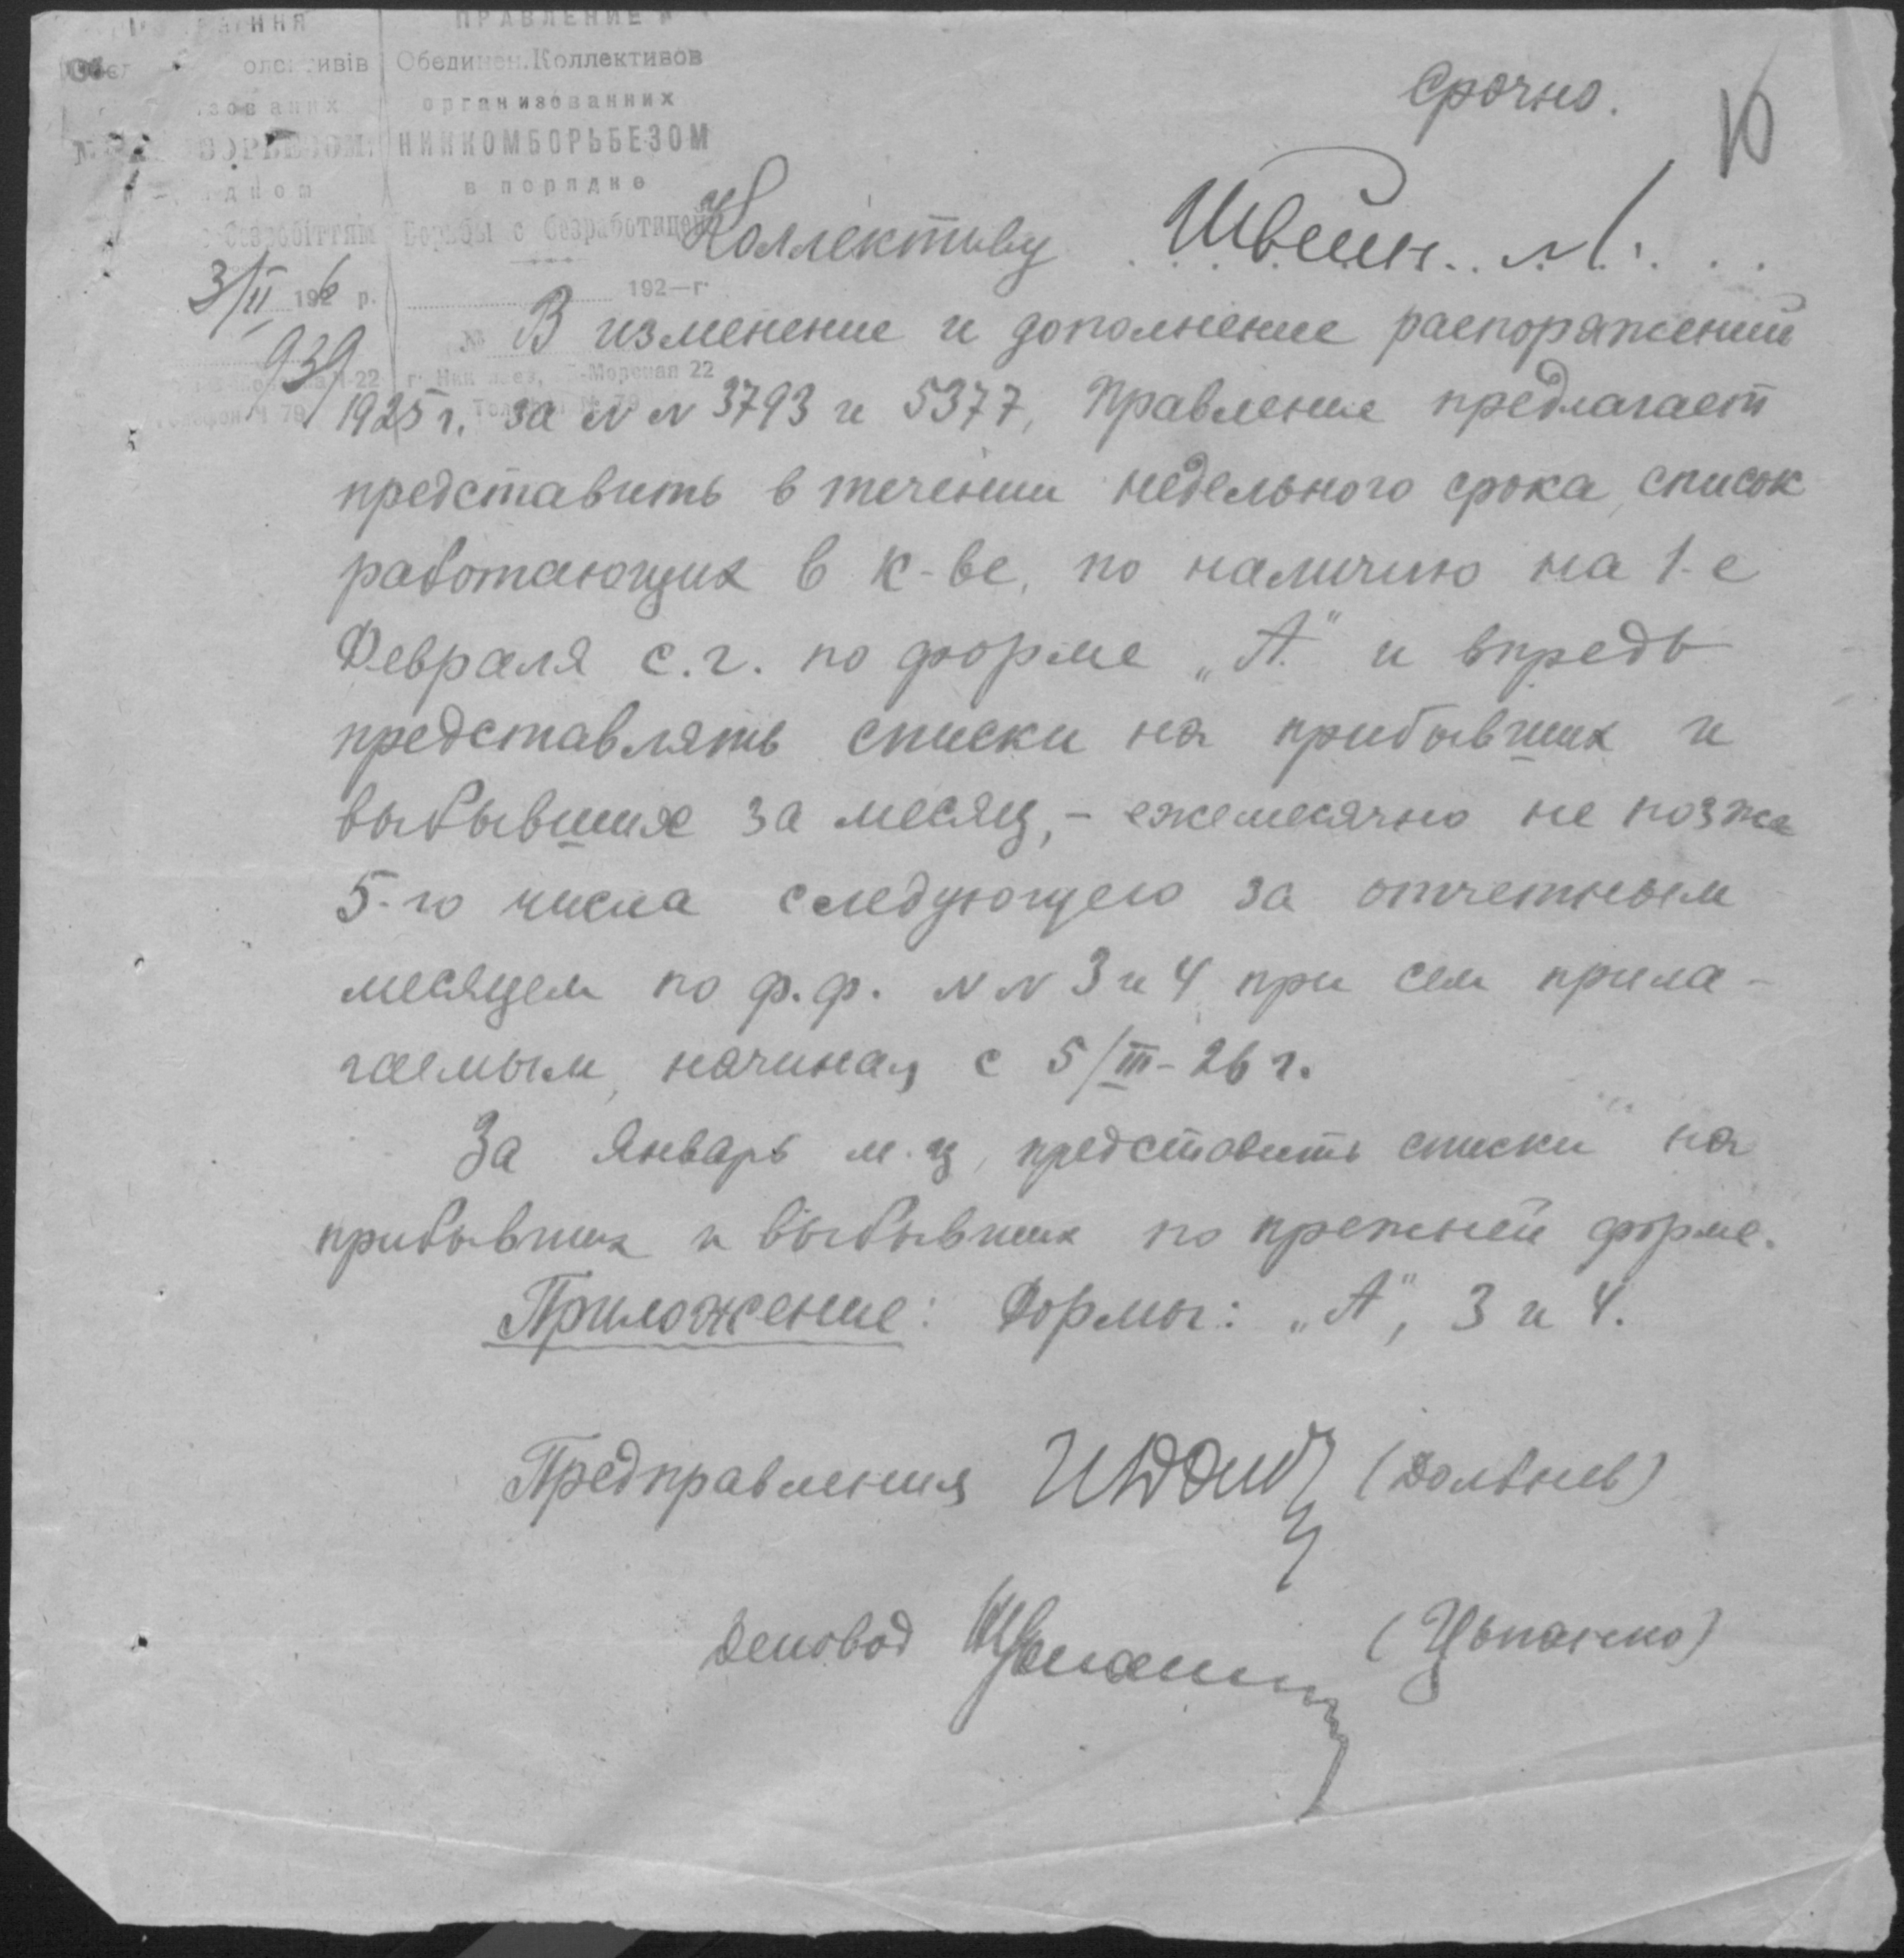 ПРАВЛЕНИЕ
Обединен. Коллективов
организованних
НИККОМБОРЬБЕЗОМ
в порядке
Борьбы с безработицей
безробіттям
3/II 1926 р.
192—г.
939
№
г. Николаев, -Морская 22
Телефон № 79
Срочно.
16
Коллективу Швейн. М.
В изменение и дополнение распоряжений
1925 г. за N N 3793 и 5377, Правление предлагает
представить в течении недельного срока, список
работающих в к-ве, по наличию на 1-е
Февраля с.г. по форме „А" и впредь
представлять списки на прибывших и
выбывших за месяц, - ежемесячно не позже
5-го числа следующего за отчетным
месяцем по ф.ф. N N 3 и 4 при сем прила-
гаемым, начиная с 5/III-26 г.
За Январь м-ц, представить списки на
прибывших и выбывших по прежней форме.
Приложение: Формы: „А", 3 и 4.
Предправления
Деловод (Цыпанко)